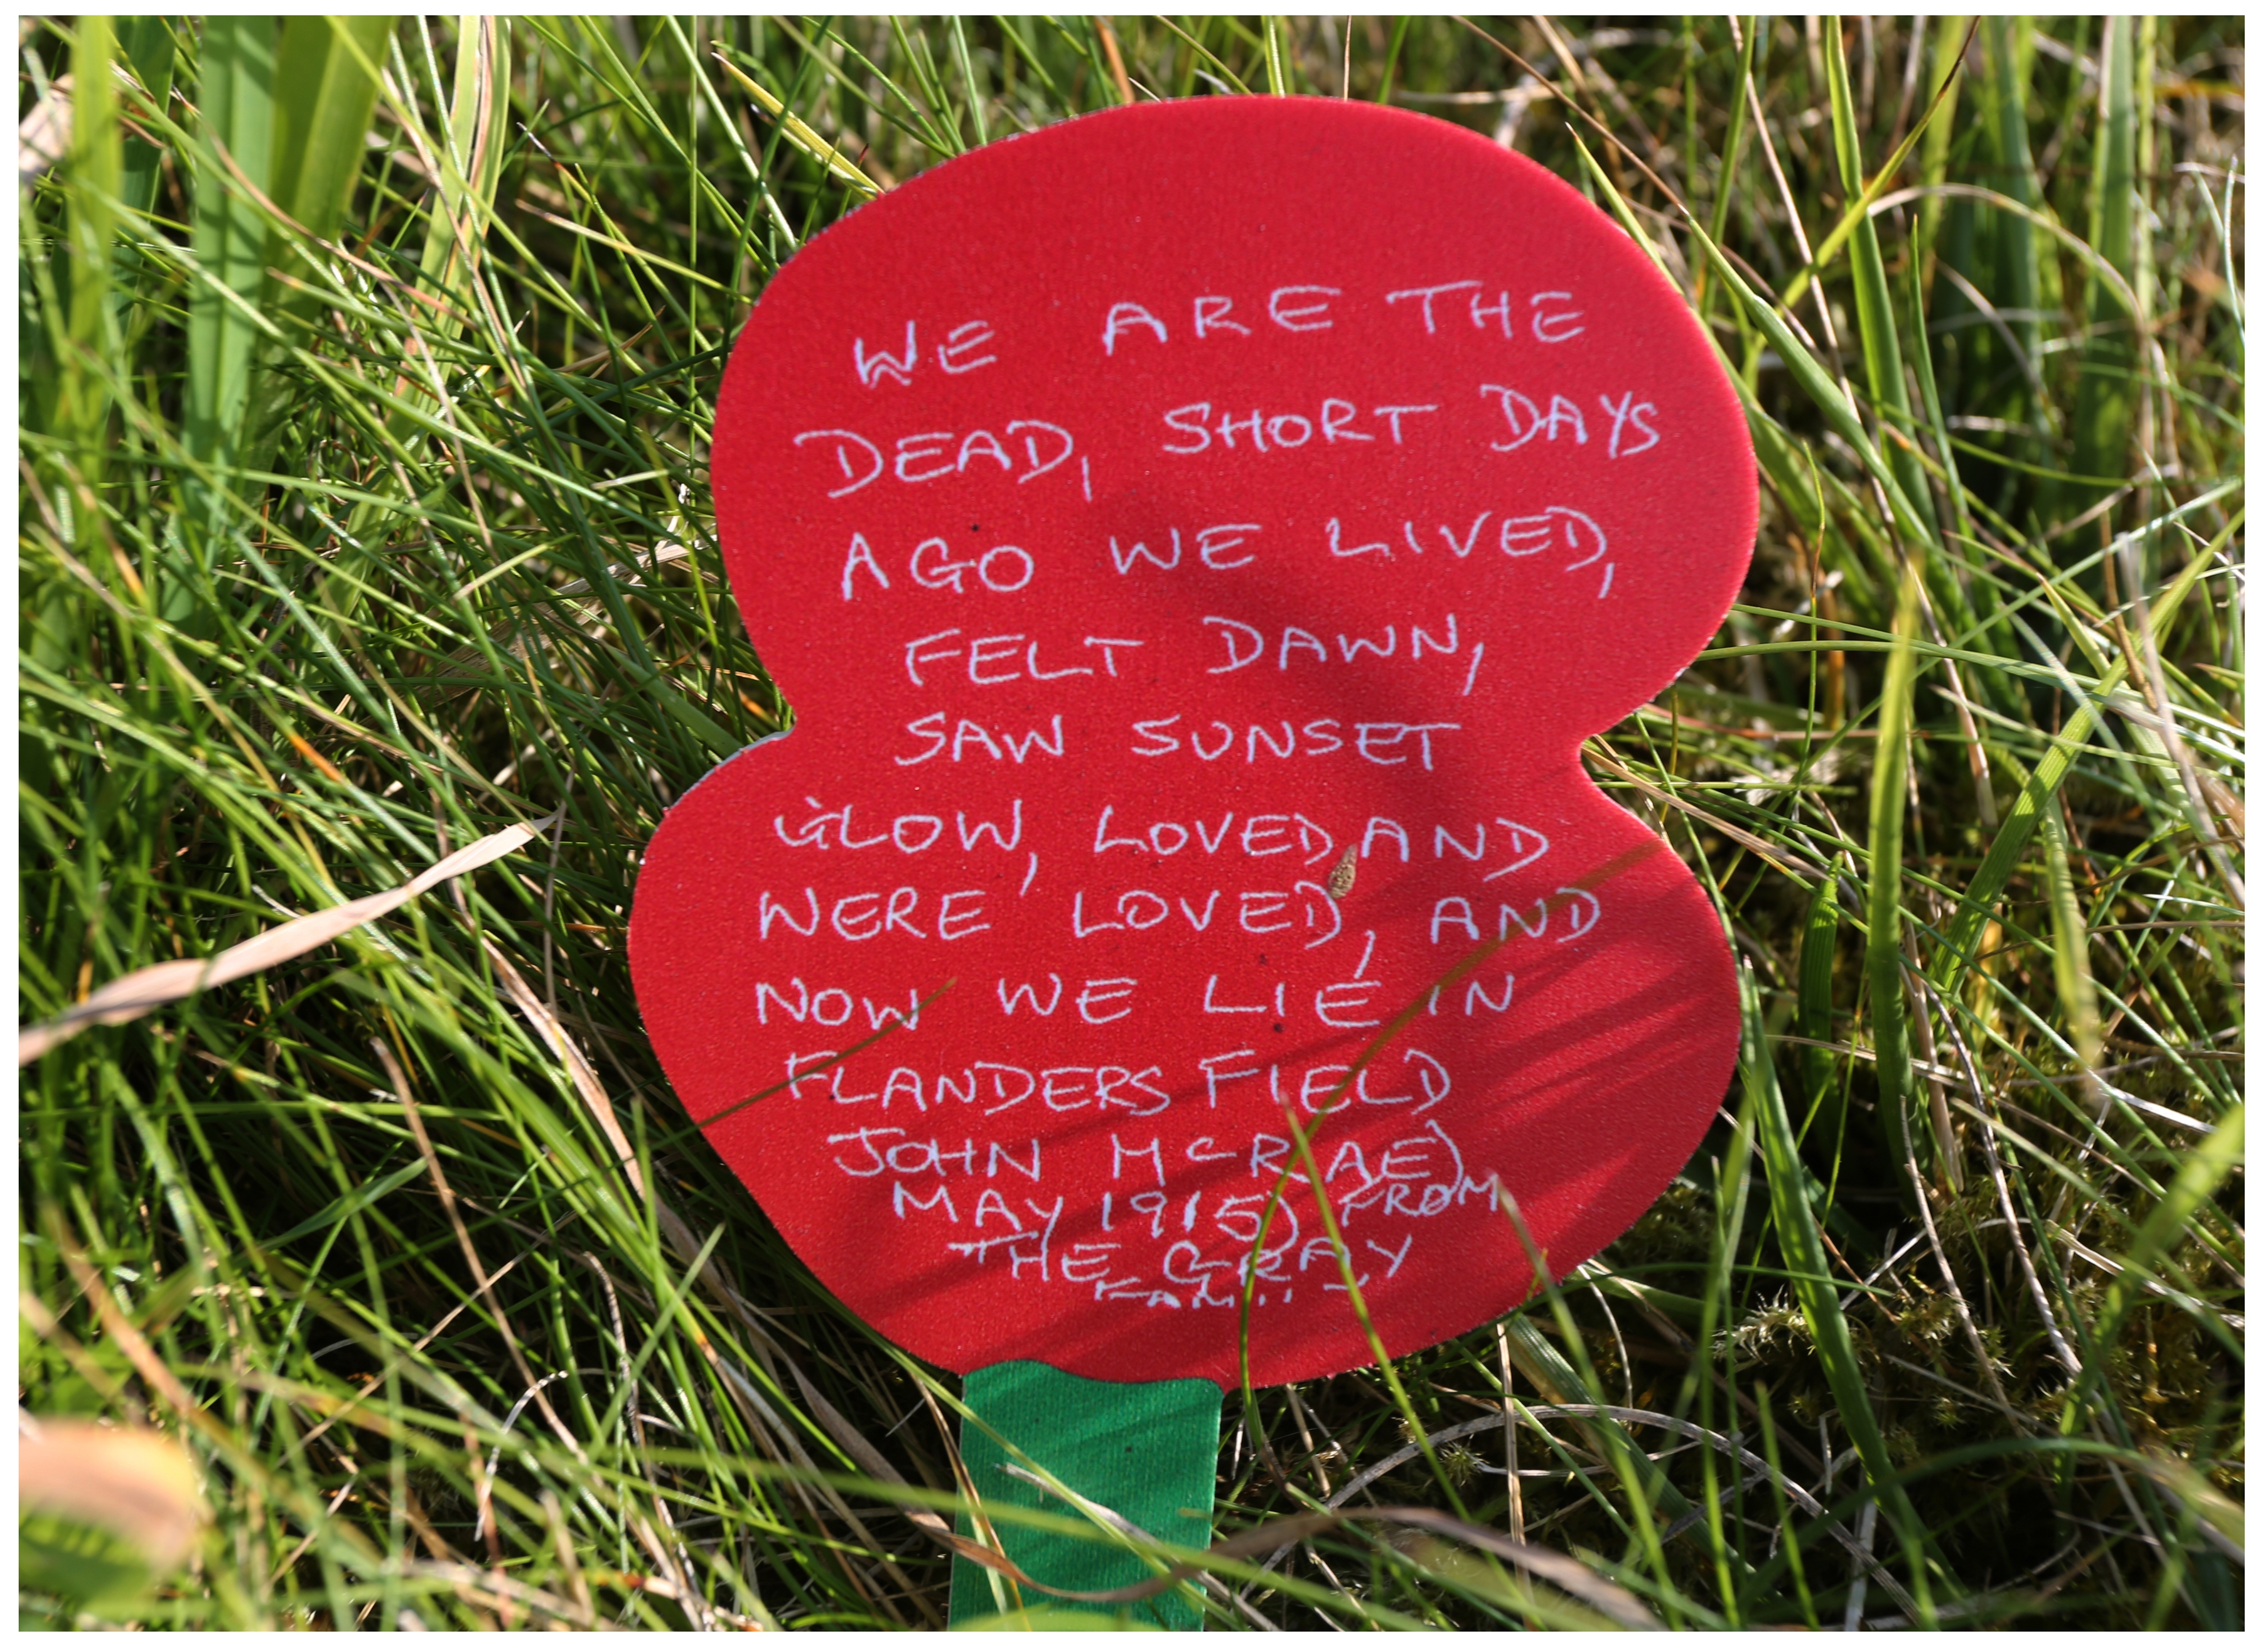 WE ARE THE
DEAD, SHORT DAYS
AGO WE LIVED,
FELT DAWN,
SAW SUNSET
GLOW, LOVED AND
WERE LOVED, AND
NOW WE LIE IN
FLANDERS FIELD
JOHN McRAE)
MAY 1915) FROM
THE GRAY
FAMILY